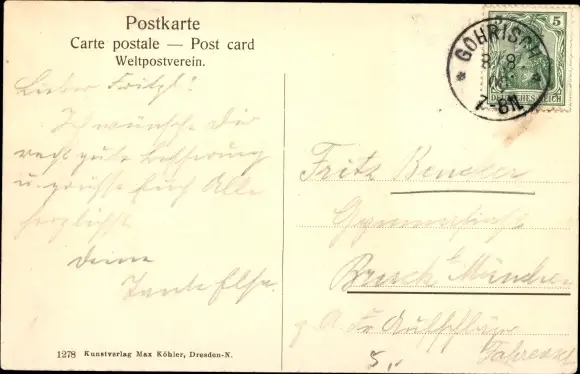 Postkarte
Carte postale — Post card
Weltpostverein.
Lieber Fritzl!
Ich wünsche Dir
recht gute Besserung
u. grüsse Euch Alle
herzlichst
Deine
Tante Else.
1278 Kunstverlag Max Köhler, Dresden-N.
5
DEUTSCHES REICH
GOHRISCH
8/8
7-8N.
Fritz
Gymnasiast
München
5,-